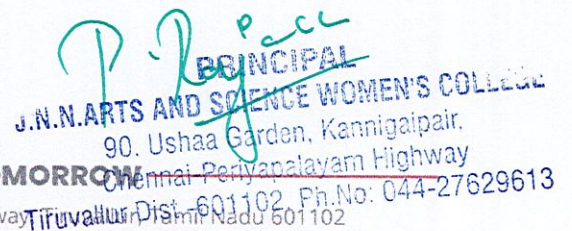 P. Rajace
PRINCIPAL
J.N.N.ARTS AND SCIENCE WOMEN'S COLLEGE
90, Ushaa Garden, Kannigaipair,
Chennai-Periyapalayam Highway
MORROW
Tiruvallur Dist -601102. Ph.No: 044-27629613
way, Tamil Nadu 601102